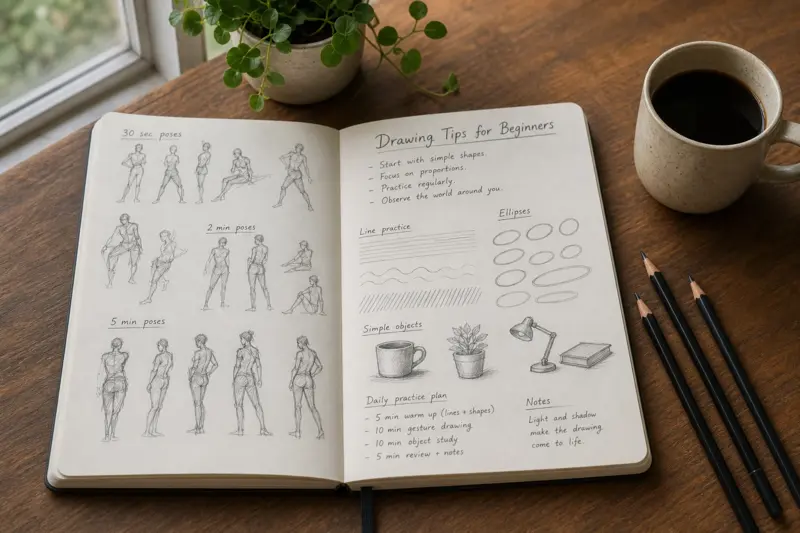 30 sec poses
2 min poses
5 min poses
Drawing Tips for Beginners
- Start with simple shapes.
- Focus on proportions.
- Practice regularly
- Observe the world around you.
Line practice
Ellipses
Simple objects
Daily practice plan
- 5 min warm up (lines + shapes)
- 10 min gesture drawing
- 10 min object study
- 5 min review + notes
Notes
Light and shadow
make the drawing
come to life.